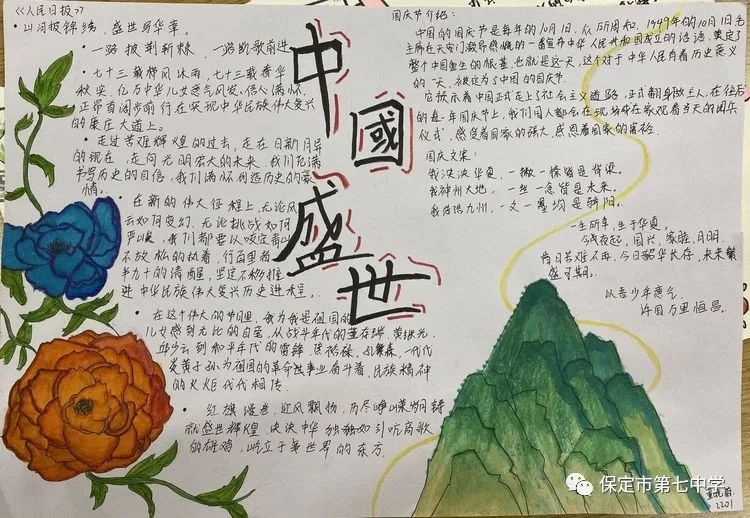 《人民日报》
• 山河披锦绣，盛世写华章。
• 一路披荆斩棘，一路凯歌前进
• 七十三载栉风沐雨，七十三载春华
秋实，亿万中华儿女意气风发、信心满怀，
正昂首阔步前行在实现中华民族伟大复兴
的康庄大道上。
• 走过苦难辉煌的过去，走在日新月异
的现在，走向光明宏大的未来，我们充满
书写历史的自信，我们满怀创造历史的豪
情。
• 在新的伟大征程上，无论风
云如何变幻，无论挑战如何
严峻，我们都要以咬定青山
不放松的执着，行百里者
半九十的清醒，坚定不移推
进中华民族伟大复兴历史进程。
• 在这个伟大的节日里，我为我是祖国的
儿女感到无比的自豪，从战斗年代的董存瑞、黄继光、
邱少云到和平年代的雷锋、焦裕禄、孔繁森，一代代
炎黄子孙为祖国的革命事业奋斗着，民族精神
的火炬代代相传
• 红旗漫卷，迎风飘扬，历尽峥嵘岁月铸
就盛世辉煌，泱泱中华
的雄鸡，屹立于世界的东方
中國盛世
国庆节介绍：
中国的国庆节是每年的10月1日，众所周知，1949年的10月1日毛
主席在天安门
整个中国重生的根基，也就是这一天，这个对于中华人民有着历史意义
的一天，被定为了中国的国庆节。
它揭示着中国正式走上了社会主义道路，正式翻身做主人，在往后
的每一年国庆节上，我们国人都会在现场
仪式，感受着国家的强大，感恩着国家的富裕。
国庆文案：
我泱泱华夏，一撇一捺皆是脊梁。
我神州大地，一生一念皆是未来。
我浩浩九州，一文一墨均是骄阳。
一生所幸，生于华夏。
今夜良宵，国兴，家旺，月明。
昔日苦难不再，今日韶华长存，未来繁
盛可期。
以吾少年意气，
许国万里恒昌。
2201
保定市第七中学